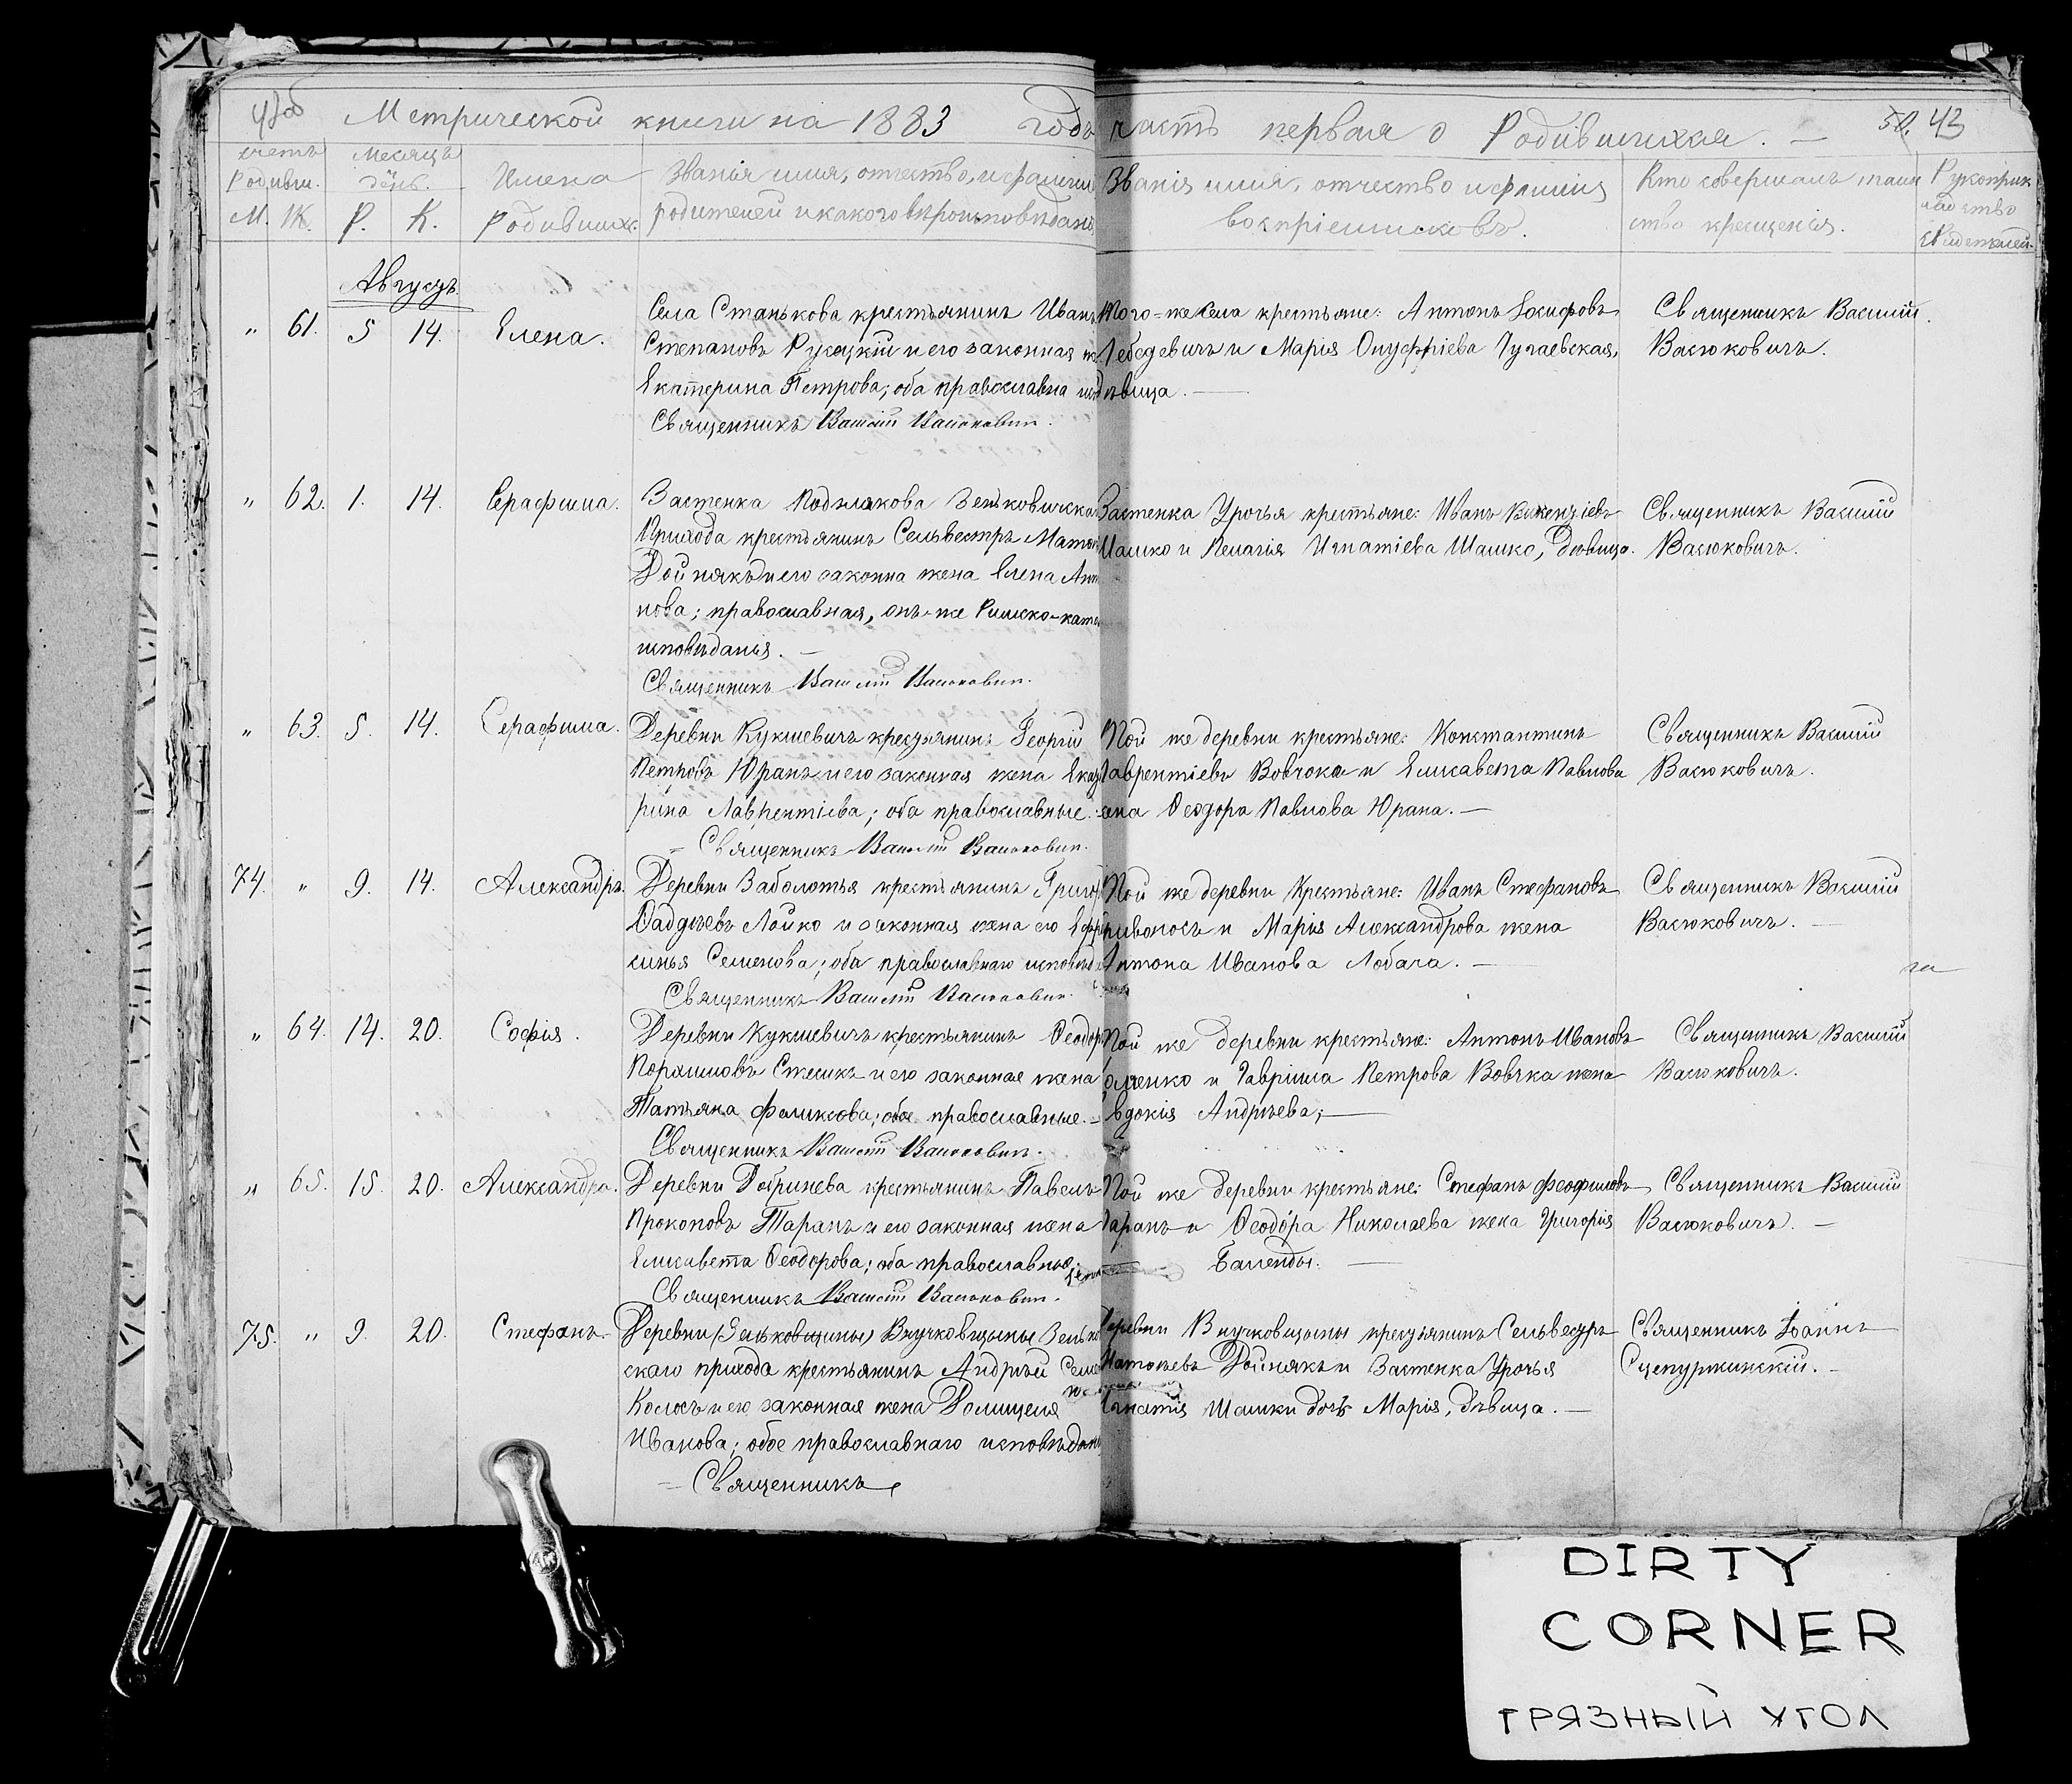 Метрической книги на 1883 годъ часть первая о Родившихся. —
50. 43
счетъ Родивш.
М. Ж.
Месяцъ день.
Р. К.
Имена Родившихъ.
Званія имя, отчество, и фамилія
родителей и какого вѣроисповѣданія
Званія имя, отчество и фамилія
воспріемниковъ.
Кто совершалъ таин
ство крещенія.
Рукоприк
ладство
свидетелей
Августъ.
" 61. 5 14. Елена.
Села Станькова крестьянинъ Иванъ
Степановъ Русецкій и его законная
Екатерина Петрова; оба православна
Священникъ Василій Васюковичъ.
Того-же села крестьяне: Антонъ Іосифовъ
Лебедевичъ и Марія Онуфріева Гучаевская,
дѣвица. —
Священникъ Василій
Васюковичъ.
" 62. 1. 14. Серафима.
Застенка Зеньковичска
Прихода крестьянинъ Сельвестръ
Дойнякъ и его законна жена Елена Анто
нова; православная, онъ-же Римско-като
исповѣданія. —
Священникъ Василій Васюковичъ.
Застенка Урочья крестьяне: Иванъ
Шашко и Пелагія Игнатіева Шашко, дѣвица.
Священникъ Василій
Васюковичъ.
" 63. 5. 14. Серафима.
Деревни Кукшевичъ крестьянинъ Георгій
Петровъ Юранъ и его законная жена Екате
рина Лаврентіева; оба православные.
Священникъ Василій Васюковичъ.
Той же деревни крестьяне: Константинъ
Лаврентіевъ Вовчока и Елисавета Павлова
жена Ѳеодора Павлова Юрана. —
Священникъ Василій
Васюковичъ.
74. " 9. 14. Александръ.
Деревни Заболотья крестьянинъ Григор
Ѳаддѣевъ Лойко и законная жена его Ефро
синья Семенова; оба православнаго исповѣд
Священникъ Василій Васюковичъ.
Той же деревни Крестьяне: Иванъ Стефановъ
и Марія Александрова жена
Антона Иванова Лобача. —
Священникъ Василій
Васюковичъ. —
" 64. 14. 20. Софія.
Деревни Кукшевичъ крестьянинъ Ѳеодоръ
Стесикъ и его законная жена
Татьяна Фаликсова; оба православные. —
Священникъ Василій Васюковичъ.
Той же деревни крестьяне: Антонъ Ивановъ
и Гавріила Петрова Вовчка жена
Евдокія Андрѣева; —
Священникъ Василій
Васюковичъ.
" 65. 15. 20. Александра.
Деревни Добринева крестьянинъ Павелъ
Прокоповъ Таранъ и его законная жена
Елисавета Ѳеодорова; оба православные;
Священникъ Василій Васюковичъ.
Той же деревни крестьяне: Стефанъ Феофиловъ
Таранъ и Ѳеодора Николаева жена Григорія
Баленды. —
Священникъ Василій
Васюковичъ. —
75. " 9. 20. Стефанъ.
Деревни (Зеньковщины) Внучковщины Зенько
скаго прихода крестьянинъ Андрѣй Семе
Колосъ и его законная жена Домицеля
Иванова; обое православнаго исповѣдан
— Священникъ
Деревни Внучковщины крестьянинъ Сельвестръ
Дойнякъ и Застенка Урочья
Игнатія Шашки дочь Марія, дѣвица. —
Священникъ Іоаннъ
Сцепуржинскій. —
DIRTY
CORNER
ГРЯЗНЫЙ УГОЛ